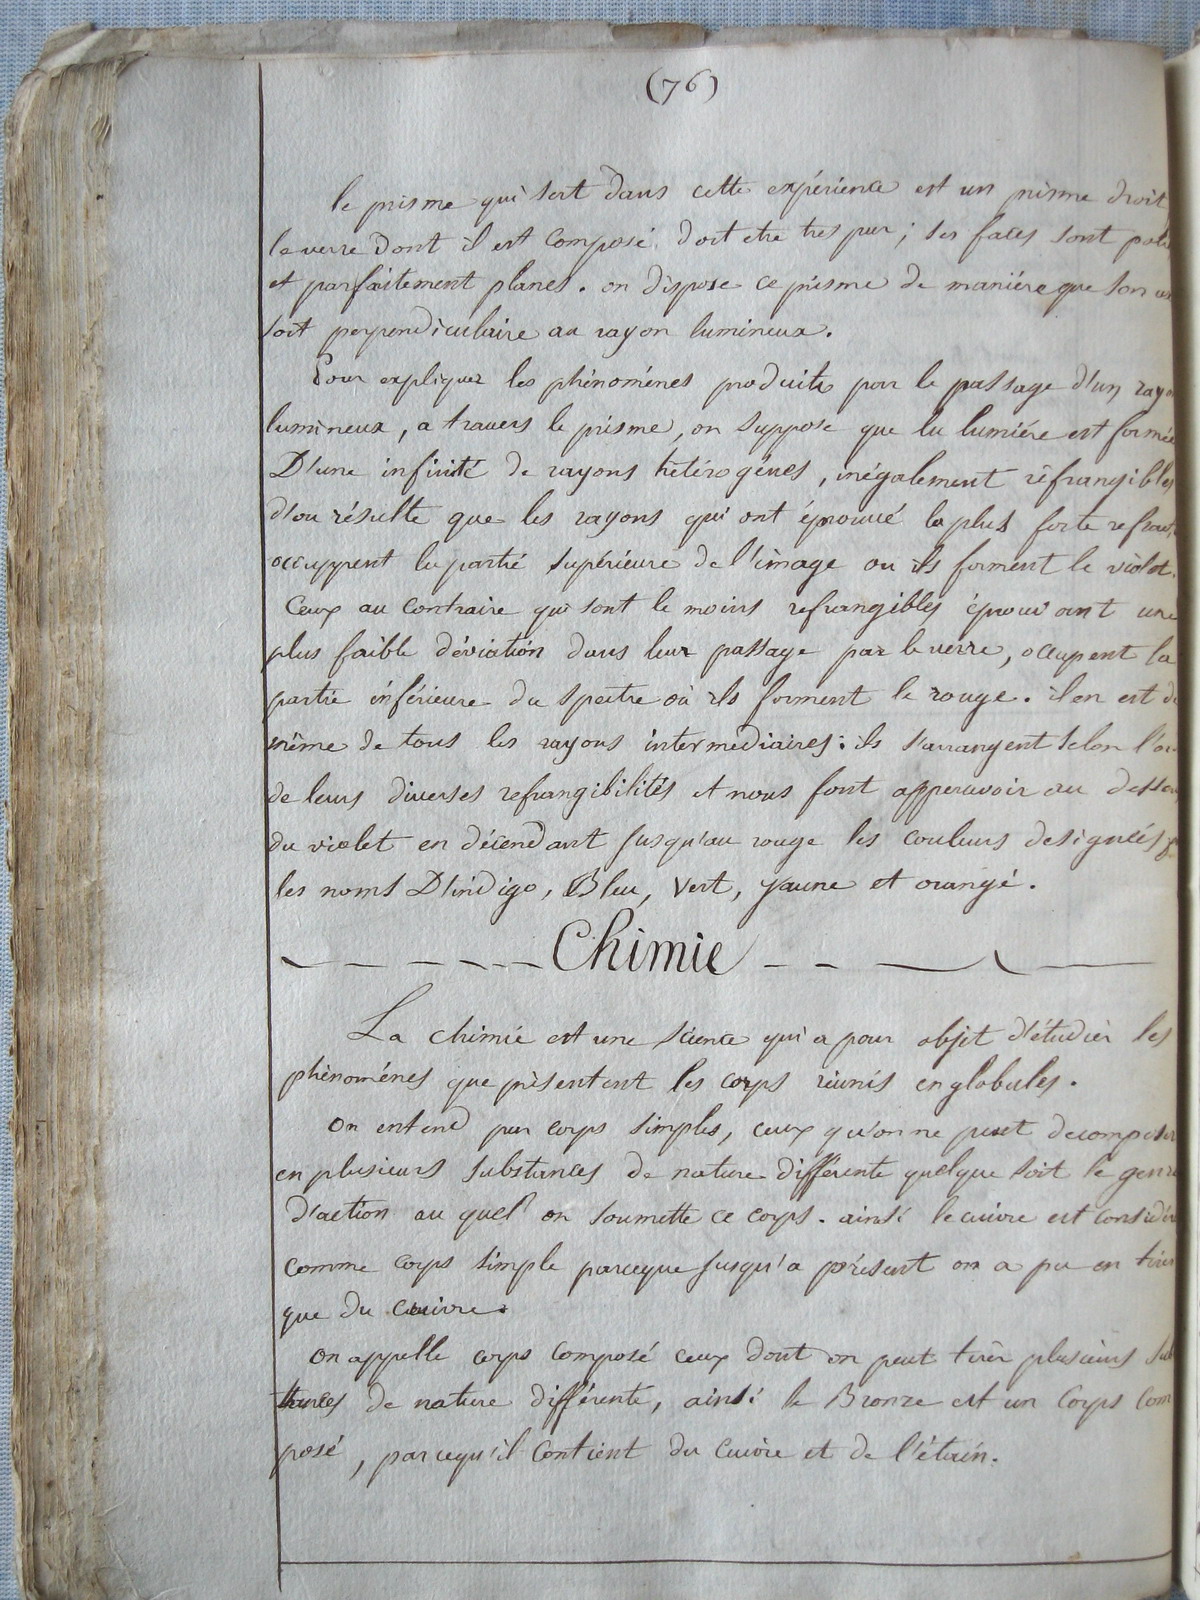 (76)
le prisme qui sert dans cette expérience est un prisme droit
le verre dont il est composé doit etre tres pur ; ses faces sont polie
et parfaitement planes. on dispose ce prisme de maniére que son
soit perpendiculaire au rayon lumineux.
Pour expliquer les phénoménes produits par le passage d'un rayo
lumineux, a travers le prisme, on suppose que la lumiére est formée
D'une infinité de rayons hétérogénes, inégalement réfrangibles
d'ou résulte que les rayons qui ont éprouvé la plus forte refract
occuppent la partié supérieure de l'image ou ils forment le violet.
Ceux au contraire qui sont le moins refrangibles éprouvant une
plus faible déviation dans leur passage par le verre, occupent la
partie inférieure du spectre où ils forment le rouge. il en est de
même de tous les rayons intermediaires : ils s'arrangent selon l'or
de leurs diverses refrangibilités et nous font appercevoir au dessou
du violet en décendant jusqu'au rouge les couleurs designées p
les noms D'indigo, Bleu, Vert, jaune et orangé.
Chimie
La chimie est une science qui a pour objet d'étudier les
phénoménes que présentent les corps réunis en globules.
On entend par corps simples, ceux qu'on ne peut decomposer
en plusieurs substances de nature différente quelque soit le genre
d'action au quel on soumette ce corps. ainsi le cuivre est considér
comme corps simple parceque jusqu'a présent on a pu en tirer
que du cuivre.
On appelle corps composé ceux dont on peut tirer plusieurs sub
stances de nature différente, ainsi le Bronze est un Corps com
posé, parcequ'il contient du Cuivre et de l'étain.